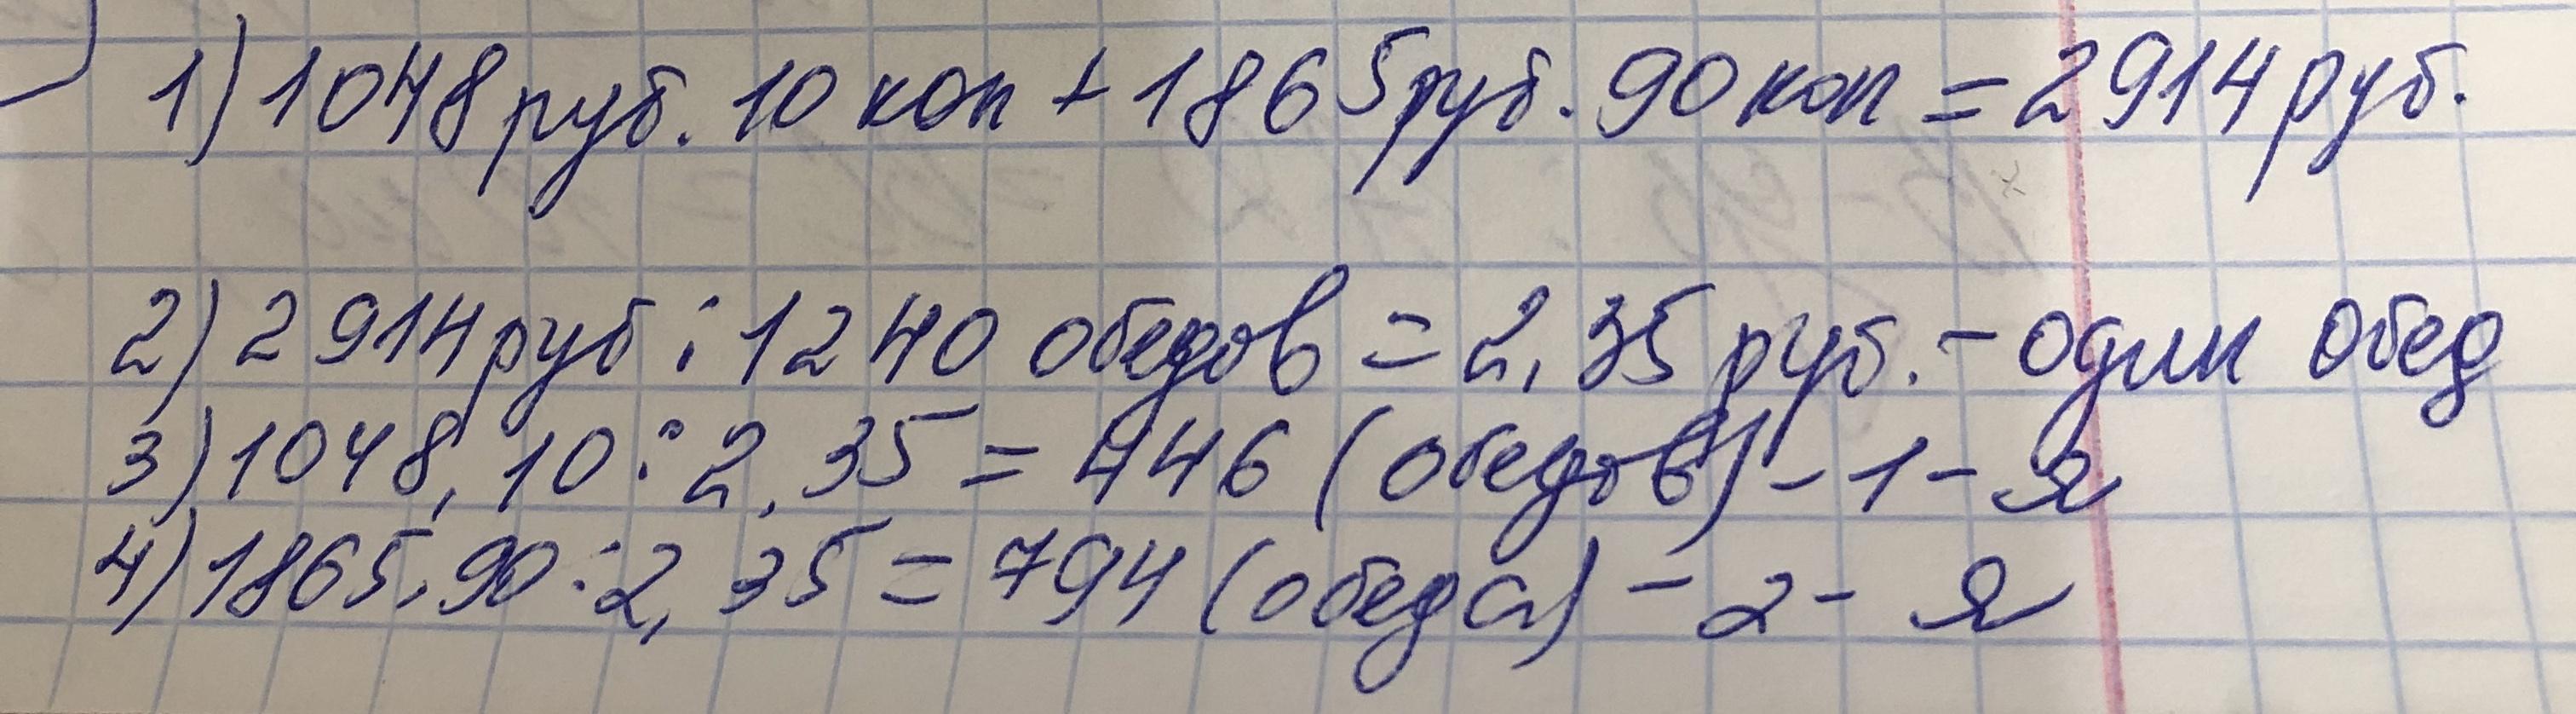 1) 1048 руб. 10 коп + 1865 руб. 90 коп = 2914 руб.
2) 2914 руб : 1240 обедов = 2,35 руб. - один обед
3) 1048,10 : 2,35 = 446 (обедов) - 1 - я
4) 1865,90 : 2,35 = 794 (обеда) - 2 - я